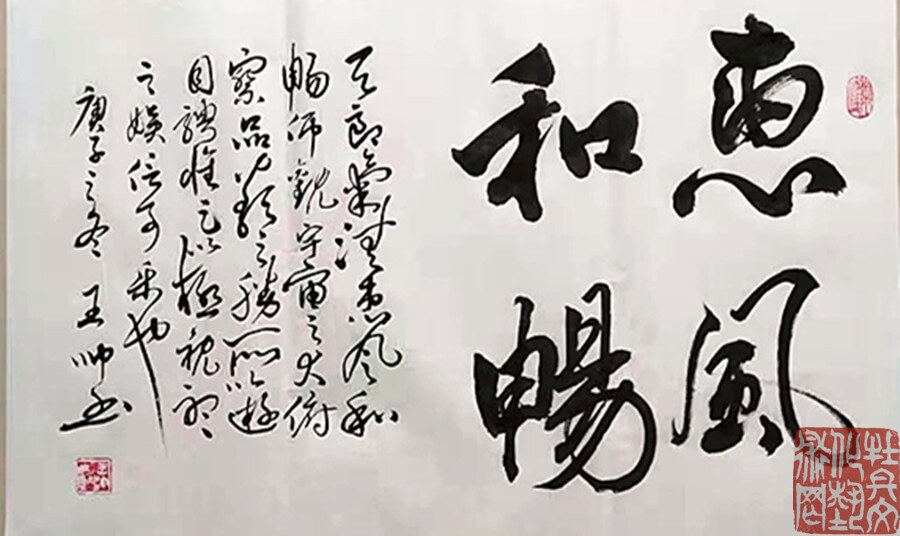 惠風
和暢
天朗氣清惠风和
暢仰觀宇宙之大俯
察品類之勝所以遊
目騁懷足以極視聽
之娱信可樂也
庚子之冬 王帅书
杜兵文化藝術网